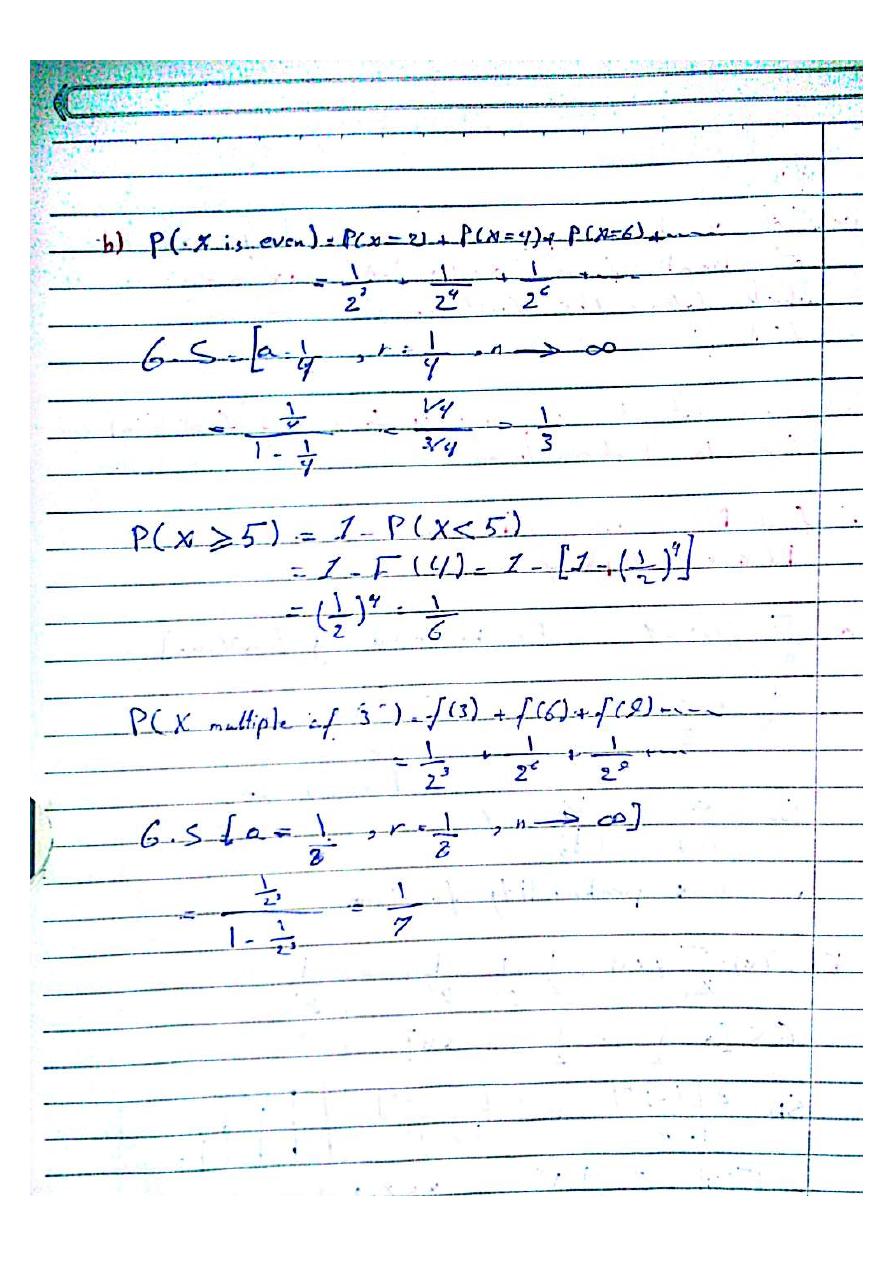 b) P(x is even) = P(x=2) + P(x=4) + P(x=6) + .....
= 1/2² + 1/2⁴ + 1/2⁶ + .....
G.S = [a = 1/4 , r = 1/4 , n → ∞
= (1/4)/(1 - 1/4) = (1/4)/(3/4) = 1/3
P(X ≥ 5) = 1 - P(X < 5)
= 1 - F(4) = 1 - [1 - (1/2)⁴]
= (1/2)⁴ = 1/6
P(X multiple of 3) = f(3) + f(6) + f(9) .....
= 1/2³ + 1/2⁶ + 1/2⁹ + .....
G.S [a = 1/8 , r = 1/8 , n → ∞]
= (1/2³)/(1 - 1/2³) = 1/7